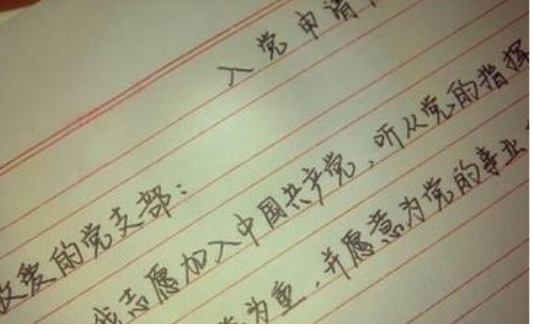 入党申请
敬爱的党支部：
我志愿加入中国共产党，听从党的指挥
为重，并愿意为党的事业